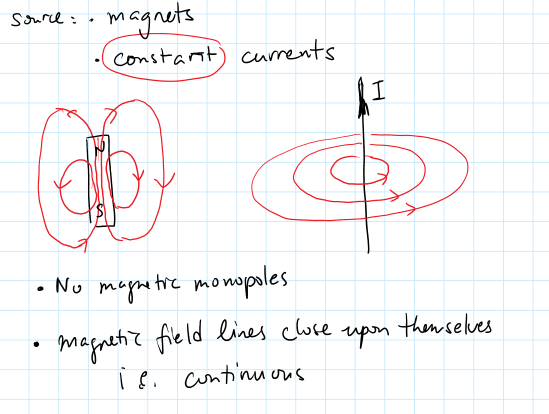 Source: • magnets
• constant currents
I
N
S
• No magnetic monopoles
• magnetic field lines close upon themselves
i.e. continuous